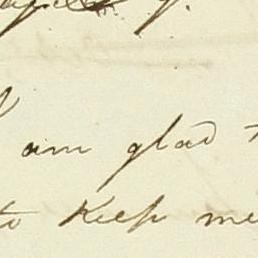 am glad
to Keep me